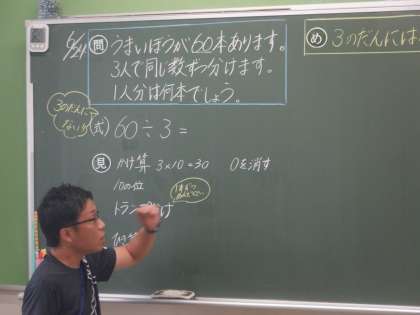 問 うまいぼうが60本あります。
3人で同じ数ずつ分けます。
1人分は何本でしょう。
め 3のだんには
3のだんに
ない
(式) 60÷3=
見 かけ算 3×10=30 0を消す
10の位
トランプ